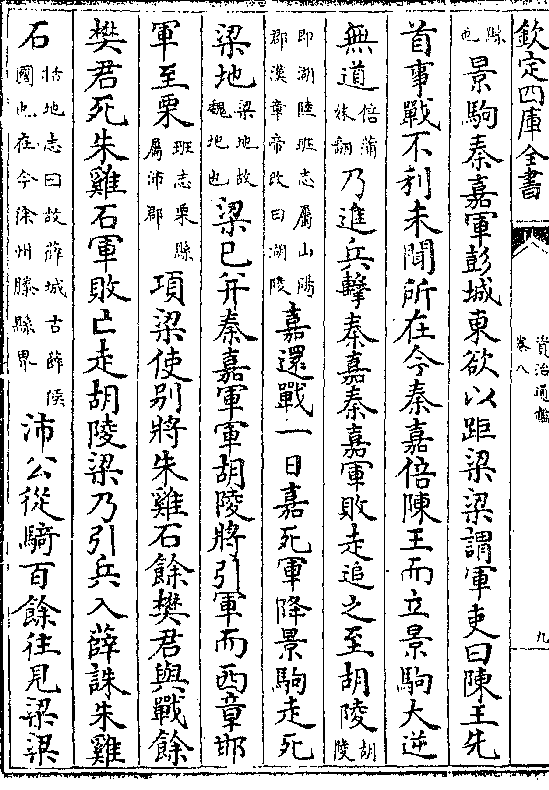 欽定四庫全書
資治通鑑
卷八
九
縣也景駒秦嘉軍彭城東欲以距梁梁謂軍吏曰陳王先
首事戰不利未聞所在今秦嘉倍陳王而立景駒大逆
無道倍蒲妹翻乃進兵擊秦嘉秦嘉軍敗走追之至胡陵胡陵
即湖陸班志屬山陽郡漢章帝改曰湖陵嘉還戰一日嘉死軍降景駒走死
梁地梁地故魏地也梁已并秦嘉軍軍胡陵將引軍而西章邯
軍至栗班志栗縣屬沛郡項梁使别將朱雞石餘樊君與戰餘
樊君死朱雞石軍敗亡走胡陵梁乃引兵入薛誅朱雞
石括地志曰故薛城古薛侯國也在今徐州滕縣界沛公從騎百餘往見梁梁